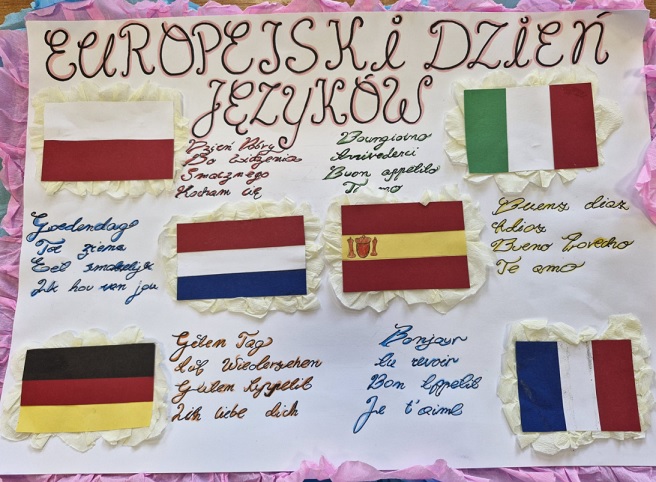 EUROPEJSKI DZIEŃ
JĘZYKÓW
Dzień Dobry
Do widzenia
Smacznego
Kocham cię
Buongiorno
Arrivederci
Buon appetito
Ti amo
Goedendag
Tot ziens
Eet smakelijk
Ik hou van jou
Buenz diaz
Adioz
Bueno
Te amo
Guten Tag
Auf Wiedersehen
Guten Appetit
Ich liebe dich
Bonjour
Au revoir
Bon Appetit
Je t'aime